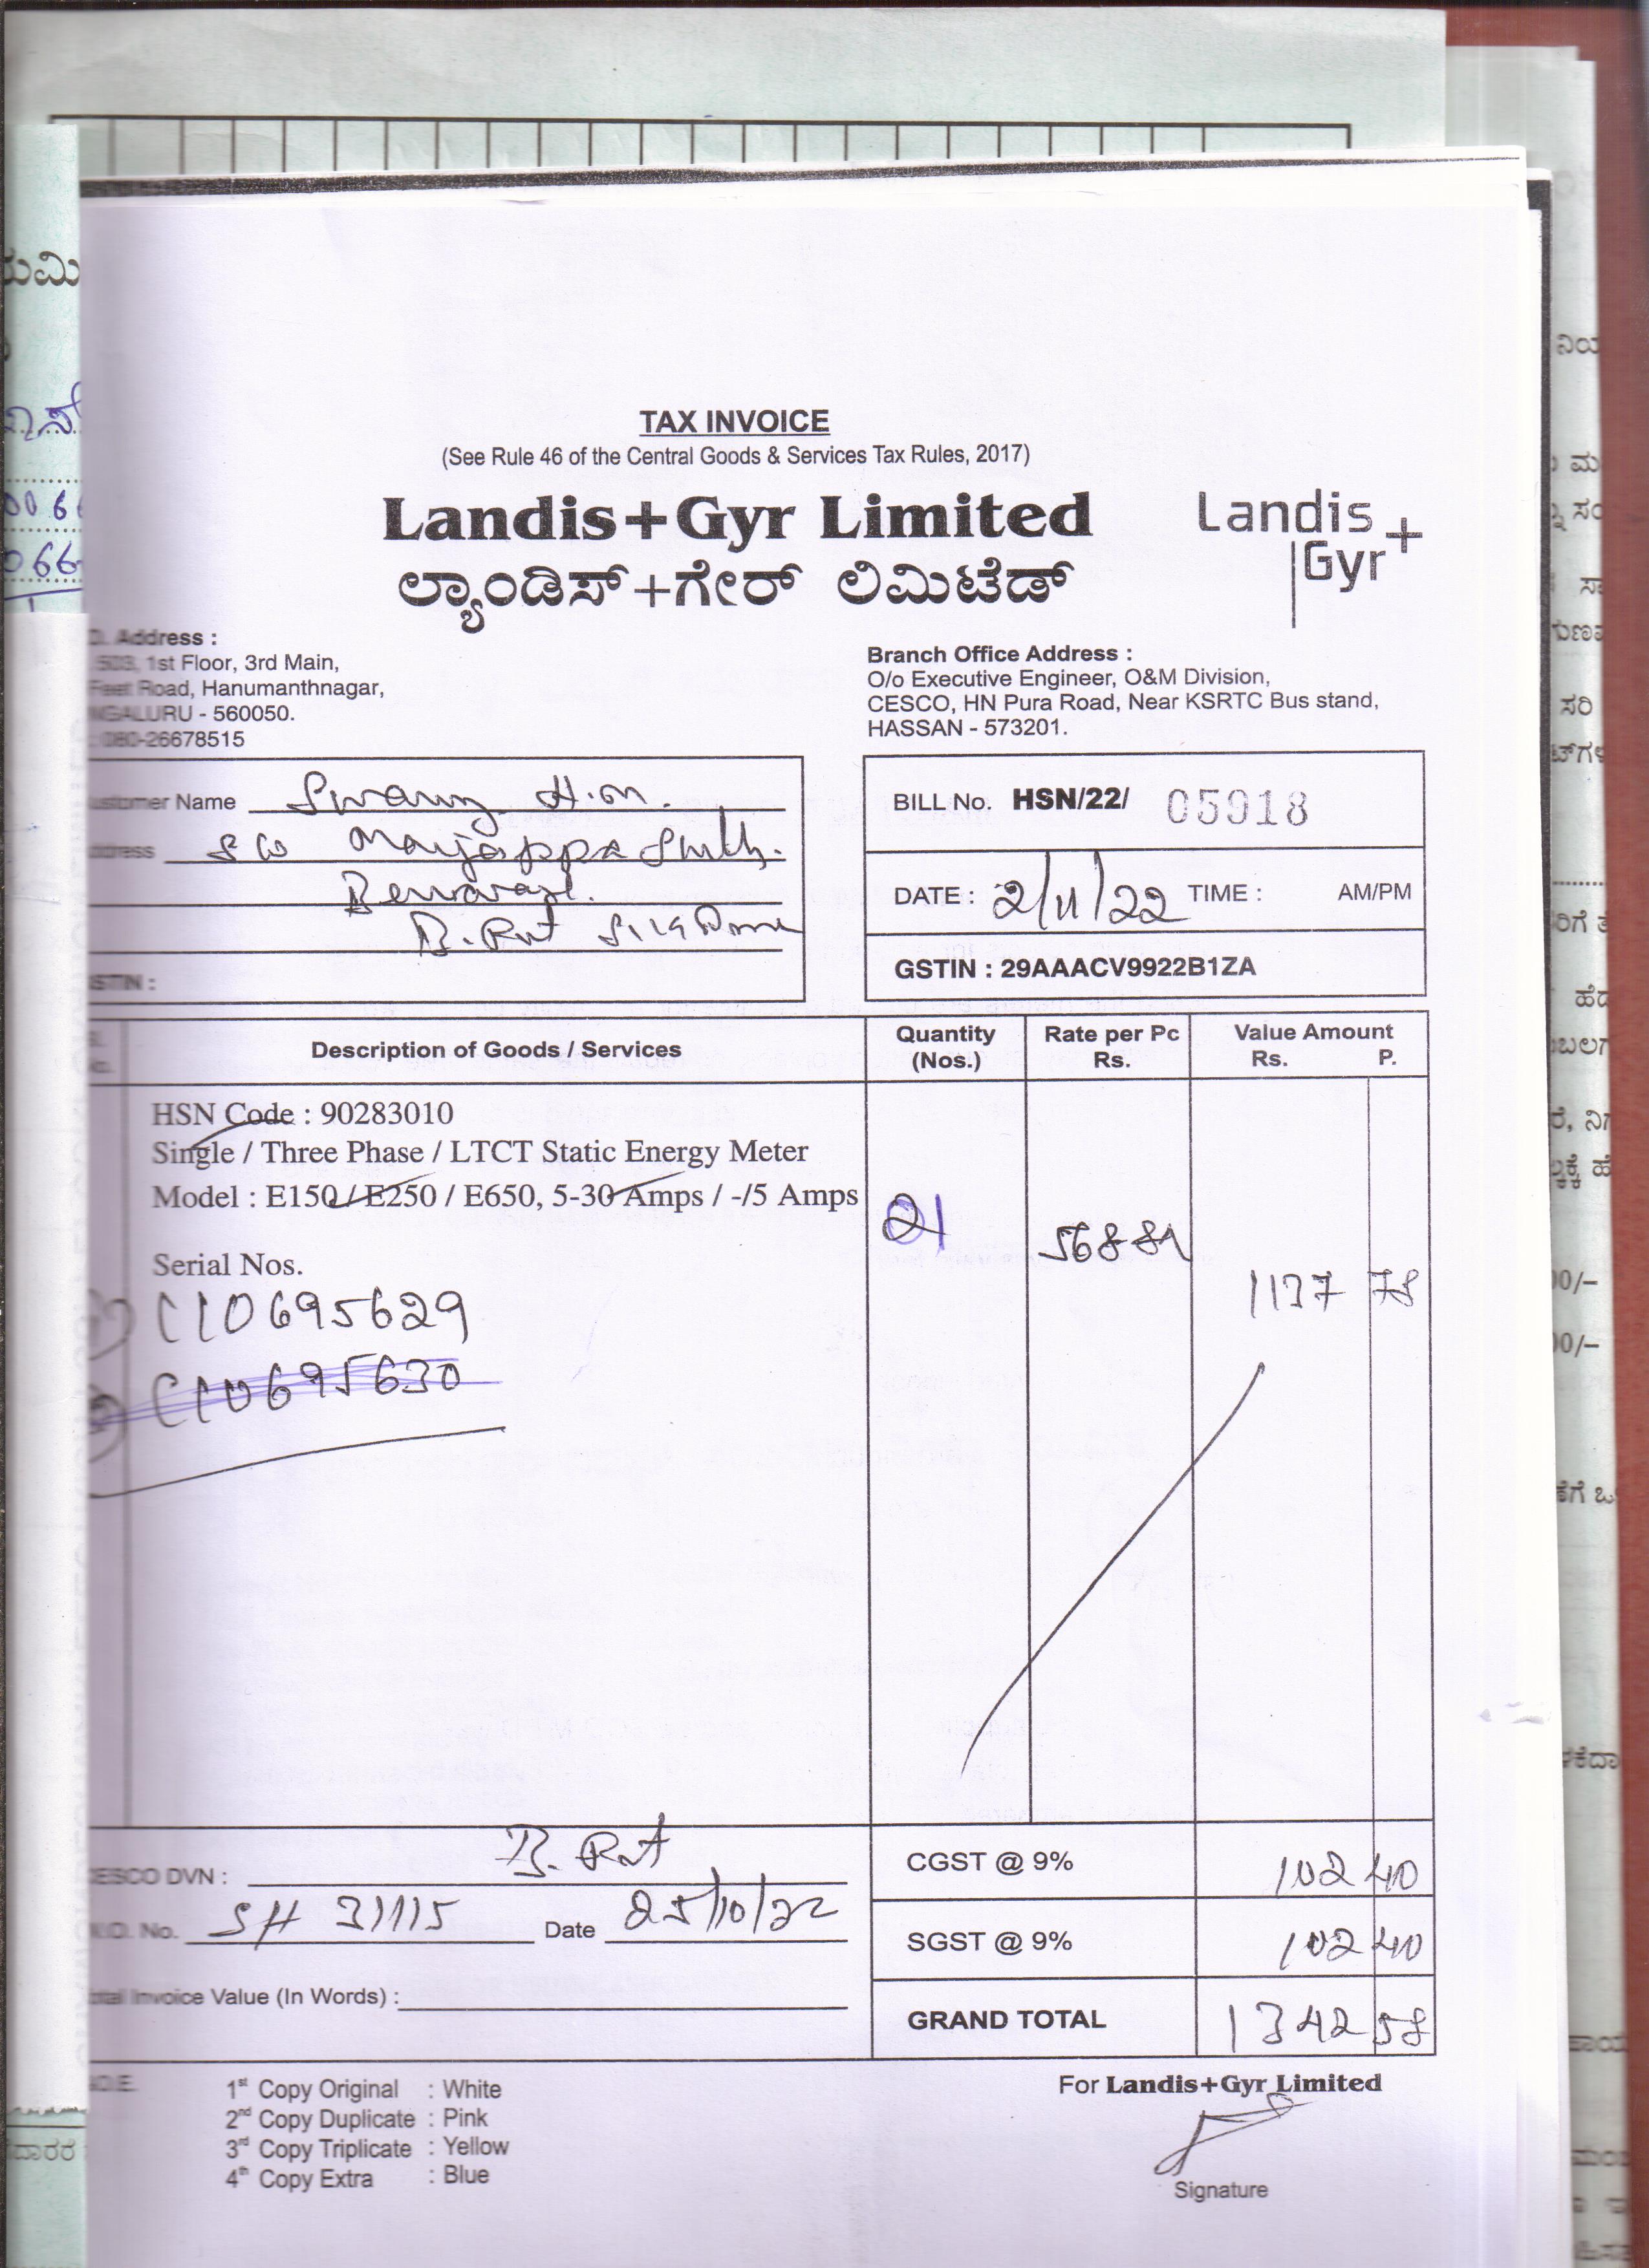 TAX INVOICE
(See Rule 46 of the Central Goods & Services Tax Rules, 2017)
Landis+Gyr Limited
ಲ್ಯಾಂಡಿಸ್+ಗೇರ್ ಲಿಮಿಟೆಡ್
Landis
Gyr+
Address :
503, 1st Floor, 3rd Main,
Feet Road, Hanumanthnagar,
GALURU - 560050.
080-26678515
Branch Office Address :
O/o Executive Engineer, O&M Division,
CESCO, HN Pura Road, Near KSRTC Bus stand,
HASSAN - 573201.
ustomer Name Swamy H.M.
ddress
STIN :
BILL No. HSN/22/ 05918
DATE : 2/11/22 TIME : AM/PM
GSTIN : 29AAACV9922B1ZA
Description of Goods / Services
Quantity (Nos.)
Rate per Pc Rs.
Value Amount Rs. P.
HSN Code : 90283010
Single / Three Phase / LTCT Static Energy Meter
Model : E150 / E250 / E650, 5-30 Amps / -/5 Amps
01
568 89
Serial Nos.
1137 78
C10695629
C10695630
CESCO DVN : B. Rut
No. SH 31115 Date 25/10/22
Invoice Value (In Words) :
CGST @ 9% 102 40
SGST @ 9% 102 40
GRAND TOTAL 1342 58
1st Copy Original : White
2nd Copy Duplicate : Pink
3rd Copy Triplicate : Yellow
4th Copy Extra : Blue
For Landis+Gyr Limited
Signature